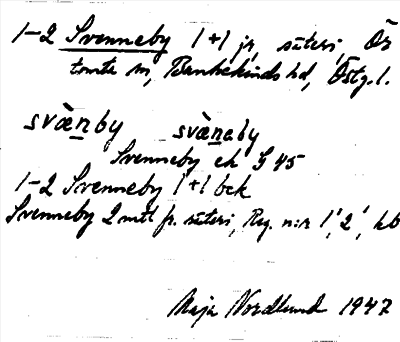 1–2 Svenneby 1+1 jr, säteri, Ör
tomta sn, Bankekinds hd, Östg. l.
svæ̀nby svæ̀naby
Svenneby ek G 45
1–2 Svenneby 1+1 bek
Svenneby 2 mtl fr. säteri, Reg. n:r 1¹, 2¹, hb
Maja Nordlund 1947